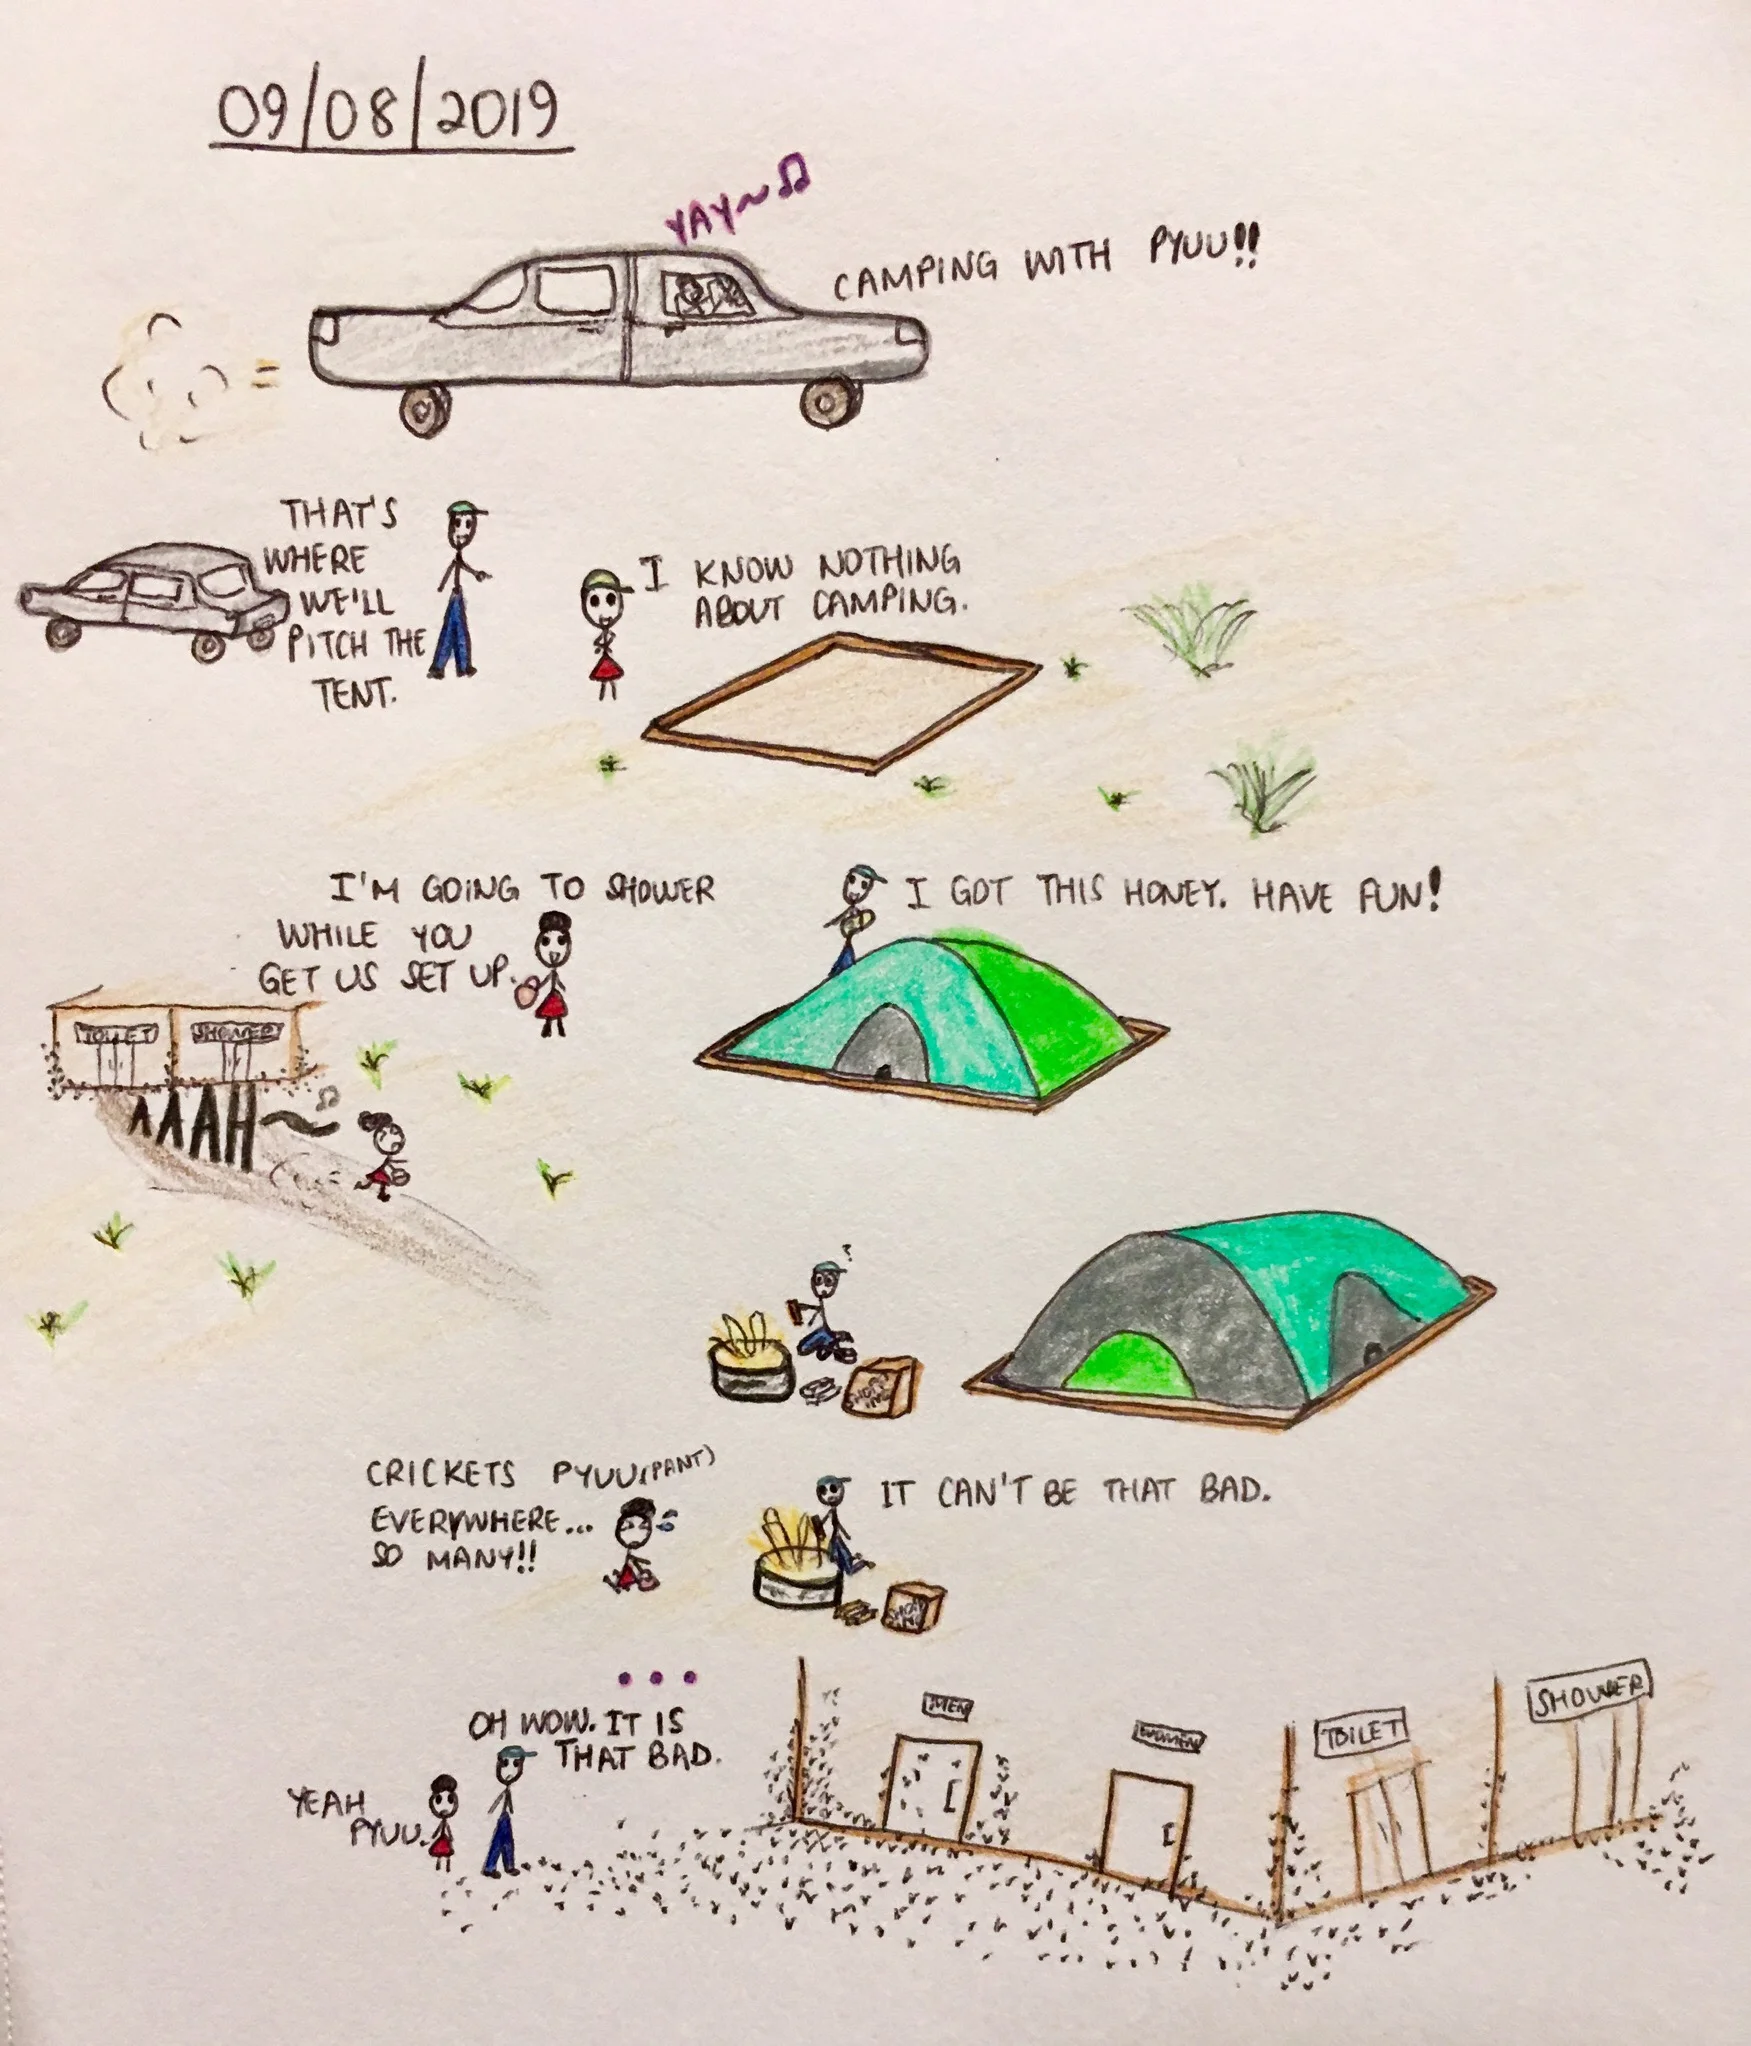 09/08/2019
YAY~♫
CAMPING WITH PYUU!!
THAT'S
WHERE
WE'LL
PITCH THE
TENT.
I KNOW NOTHING
ABOUT CAMPING.
I'M GOING TO SHOWER
WHILE YOU
GET US SET UP.
I GOT THIS HONEY. HAVE FUN!
TOILET
SHOWER
AAAH~♫
?
SHOPPING
CRICKETS PYUU (PANT)
EVERYWHERE...
SO MANY!!
IT CAN'T BE THAT BAD.
...
OH WOW. IT IS
THAT BAD.
YEAH
PYUU.
MEN
WOMEN
TOILET
SHOWER